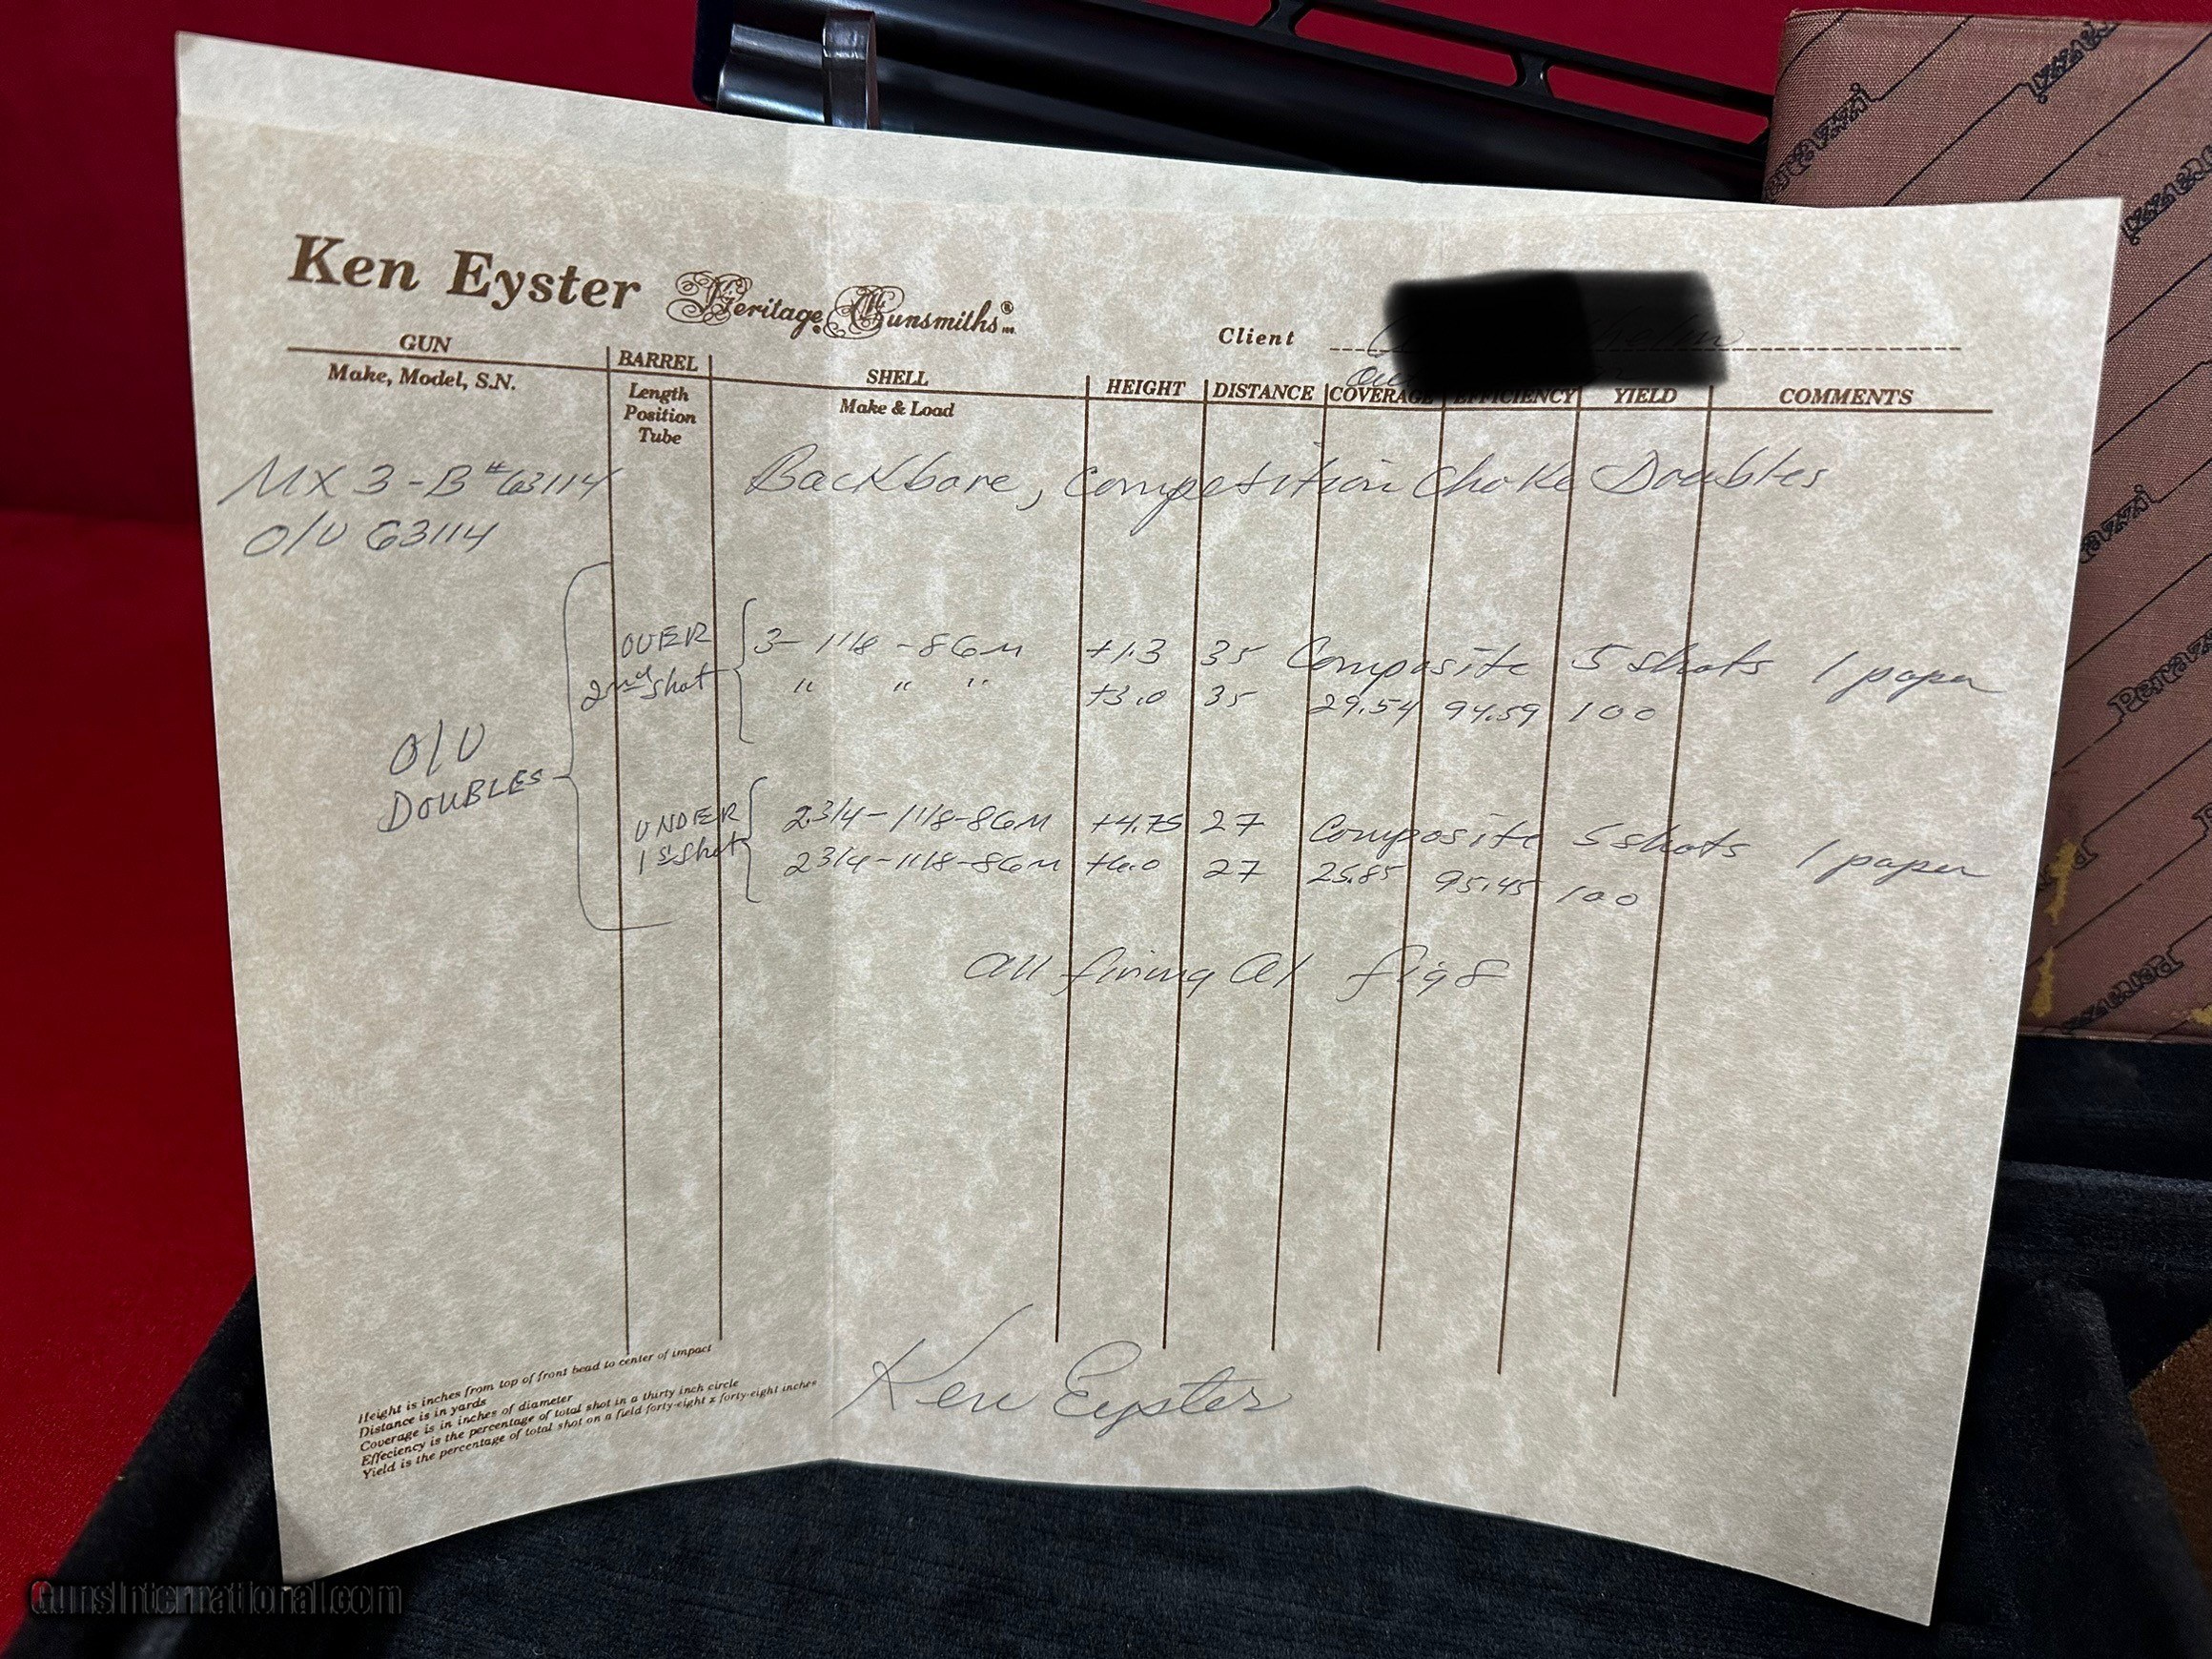 Ken Eyster Heritage Gunsmiths® INC.
Client
GUN BARREL SHELL HEIGHT DISTANCE COVERAGE EFFICIENCY YIELD COMMENTS
Make, Model, S.N. Length Make & Load
Position
Tube
MX 3-B #63114 Backbore, Competition Choke Doubles
O/U 63114
OVER 3- 1 1/8 -86M +1.3 35 Composite 5 shots 1 paper
2nd shot " " " +3.0 35 29.54 94.59 100
O/U
DOUBLES
UNDER 2 3/4-1 1/8-86M +4.75 27 Composite 5 shots 1 paper
1st shot 2 3/4-1 1/8-86M +6.0 27 25.85 95.45 100
All firing at fig 8
Ken Eyster
Height is inches from top of front bead to center of impact
Distance is in yards
Coverage is in inches of diameter
Effeciency is the percentage of total shot in a thirty inch circle
Yield is the percentage of total shot on a field forty-eight x forty-eight inches
Perazzi
Perazzi
Perazzi
Perazzi
Perazzi
GunsInternational.com